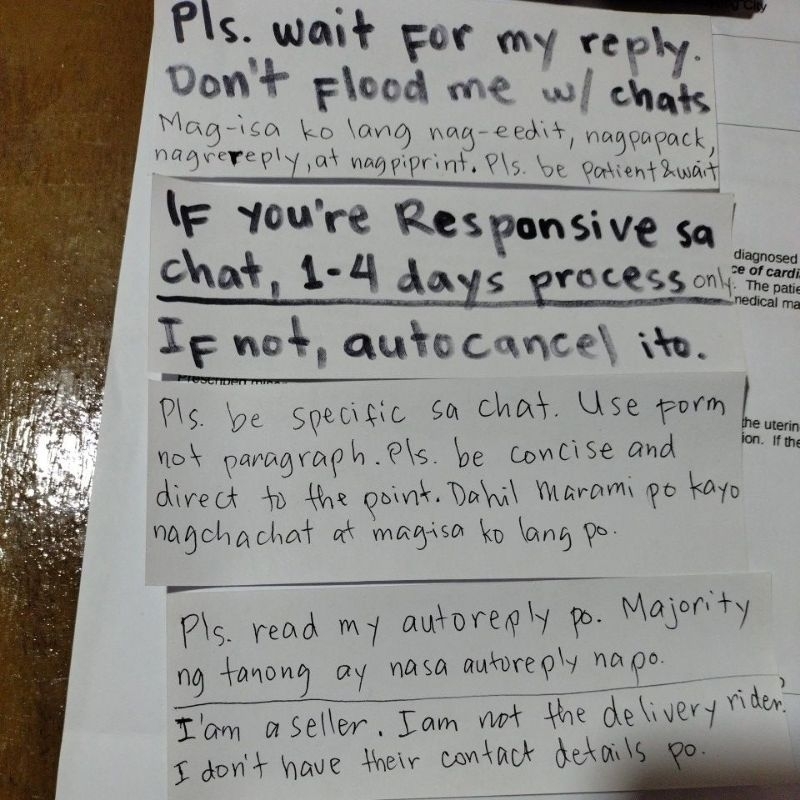 ng City
Pls. wait For my reply.
Don't Flood me w/ chats
Mag-isa ko lang nag-eedit, nagpapack,
nagrereply, at nagpiprint. Pls. be patient & wait
IF you're Responsive sa
chat, 1-4 days process only.
IF not, autocancel ito.
diagnosed
ce of cardi
The patie
medical ma
Pls. be specific sa chat. Use Form
not paragraph. Pls. be concise and
direct to the point. Dahil Marami po kayo
nagchachat at magisa ko lang po.
the uterin
ion. If the
Pls. read my autoreply po. Majority
ng tanong ay nasa autoreply na po.
I'am a seller. I am not the delivery rider.
I don't have their contact details po.